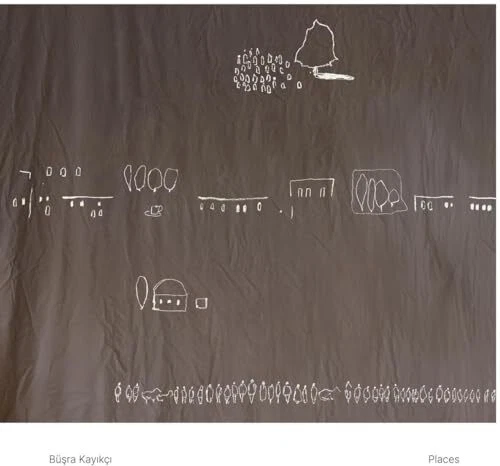 Büşra Kayıkçı
Places